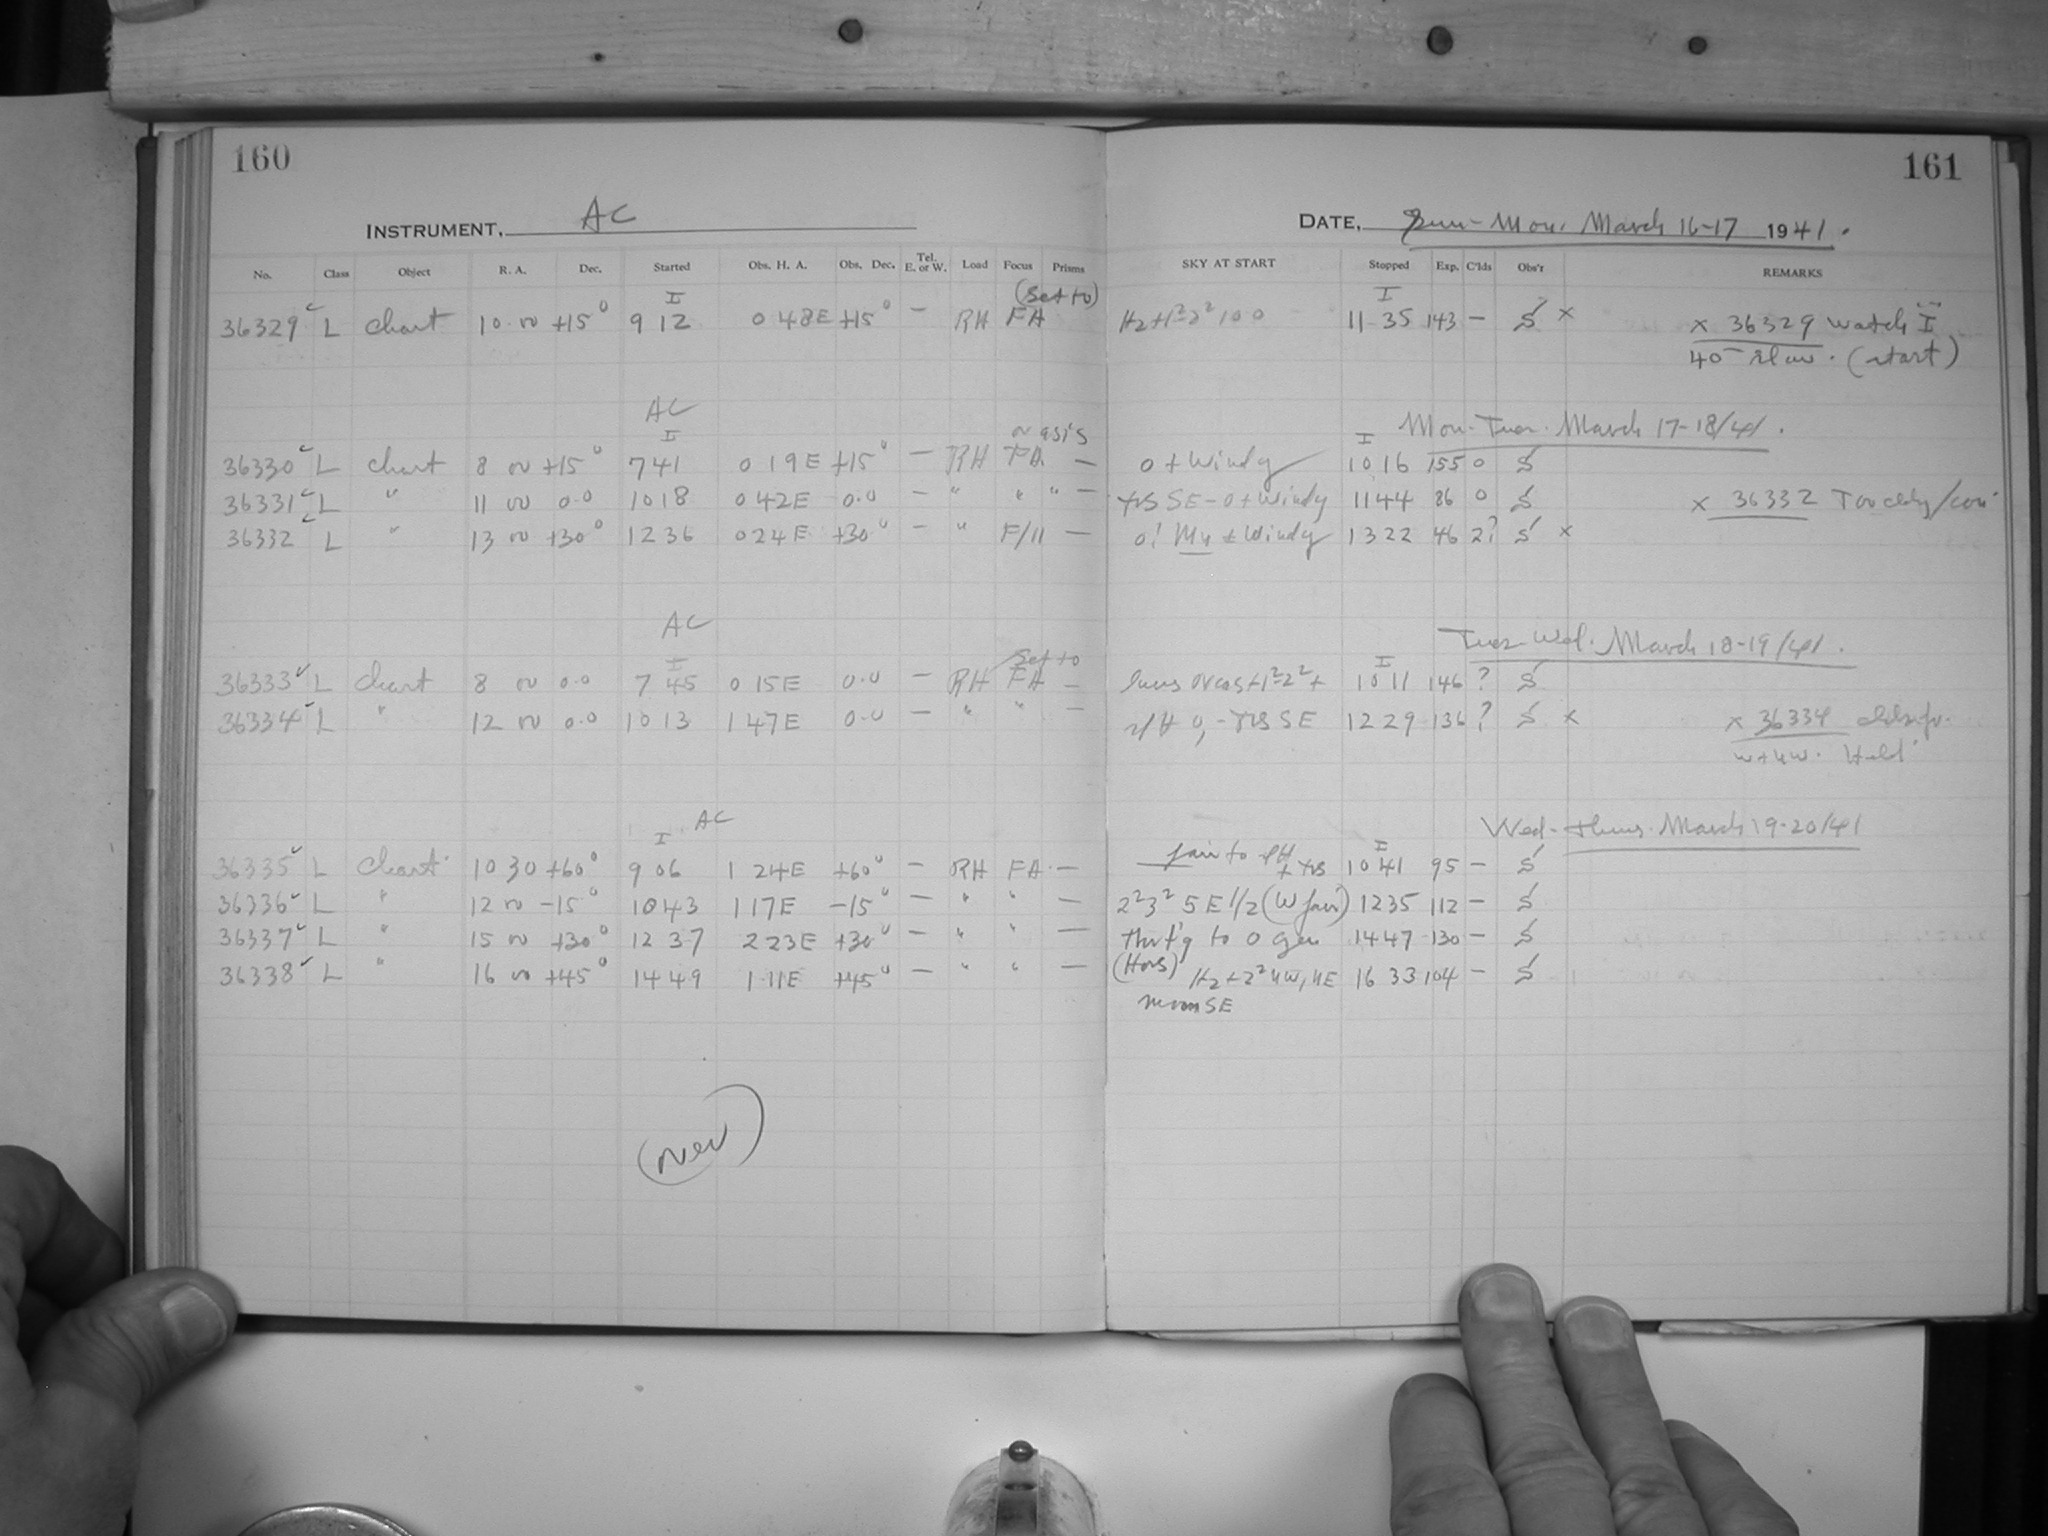 160
INSTRUMENT, AC
No. Class Object R. A. Dec. Started Obs. H. A. Obs. Dec. Tel. E. or W. Load Focus Prisms
I (Set to)
36329 L Chart 10 00 +15° 9 12 0 48E +15° — RH FA
AC
I as is
36330 L Chart 8 00 +15° 7 41 0 19E +15° — RH FA —
36331 L " 11 00 0.0 10 18 0 42E 0.0 — " " " —
36332 L " 13 00 +30° 12 36 0 24E +30° — " F/11 —
AC
I Set to
36333 L Chart 8 00 0.0 7 45 0 15E 0.0 — RH FA —
36334 L " 12 00 0.0 10 13 1 47E 0.0 — " " —
AC
I
36335 L Chart 10 30 +60° 9 06 1 24E +60° — RH FA —
36336 L " 12 00 -15° 10 43 1 17E -15° — " " —
36337 L " 15 00 +30° 12 37 2 23E +30° — " " —
36338 L " 16 00 +45° 14 49 1 11E +45° — " " —
(over)
161
DATE, Sun - Mon. March 16-17 1941.
SKY AT START Stopped Exp. C'lds Obs'r REMARKS
I
11 35 143 — S x x 36329 watch I
40 slow. (start)
Mon-Tues. March 17-18/41.
I
0 + Windy 10 16 155 0 S
SE - 0 + Windy 11 44 86 0 S x 36332
+ Windy 13 22 46 2? S x
Tues-Wed. March 18-19/41.
I
10 11 146 ? S
SE 12 29 136 ? S x x 36334
Wed-Thurs. March 19-20/41
fair to I
10 41 95 — S
2²3² SE 1/2 (W fair) 12 35 112 — S
to 0 gen 14 47 130 — S
16 33 104 — S
moon SE